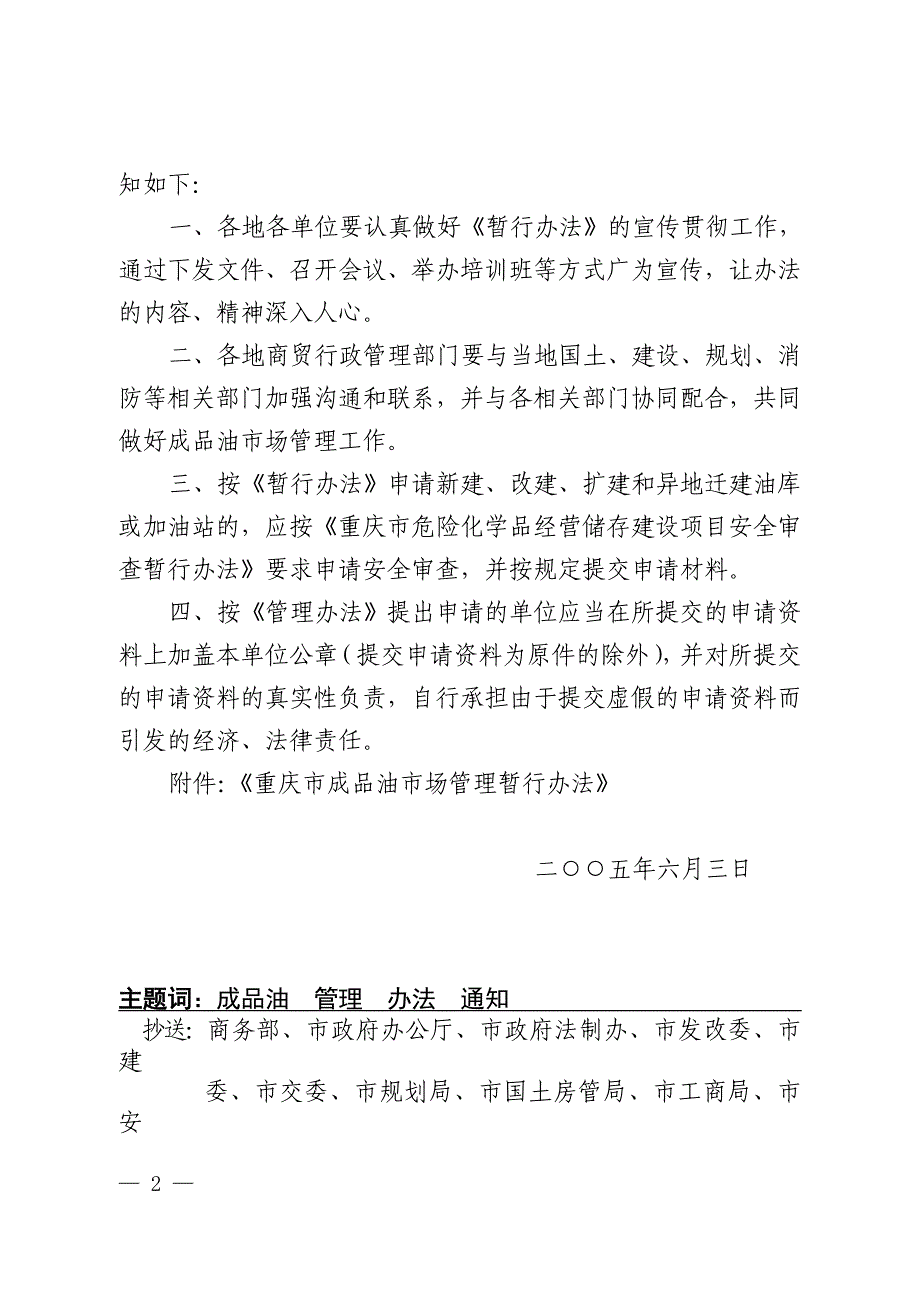 知如下：
一、各地各单位要认真做好《暂行办法》的宣传贯彻工作，
通过下发文件、召开会议、举办培训班等方式广为宣传，让办法
的内容、精神深入人心。
二、各地商贸行政管理部门要与当地国土、建设、规划、消
防等相关部门加强沟通和联系，并与各相关部门协同配合，共同
做好成品油市场管理工作。
三、按《暂行办法》申请新建、改建、扩建和异地迁建油库
或加油站的，应按《重庆市危险化学品经营储存建设项目安全审
查暂行办法》要求申请安全审查，并按规定提交申请材料。
四、按《管理办法》提出申请的单位应当在所提交的申请资
料上加盖本单位公章（提交申请资料为原件的除外），并对所提交
的申请资料的真实性负责，自行承担由于提交虚假的申请资料而
引发的经济、法律责任。
附件：《重庆市成品油市场管理暂行办法》
二〇〇五年六月三日
主题词：成品油　管理　办法　通知
抄送：商务部、市政府办公厅、市政府法制办、市发改委、市
建
委、市交委、市规划局、市国土房管局、市工商局、市
安
— 2 —